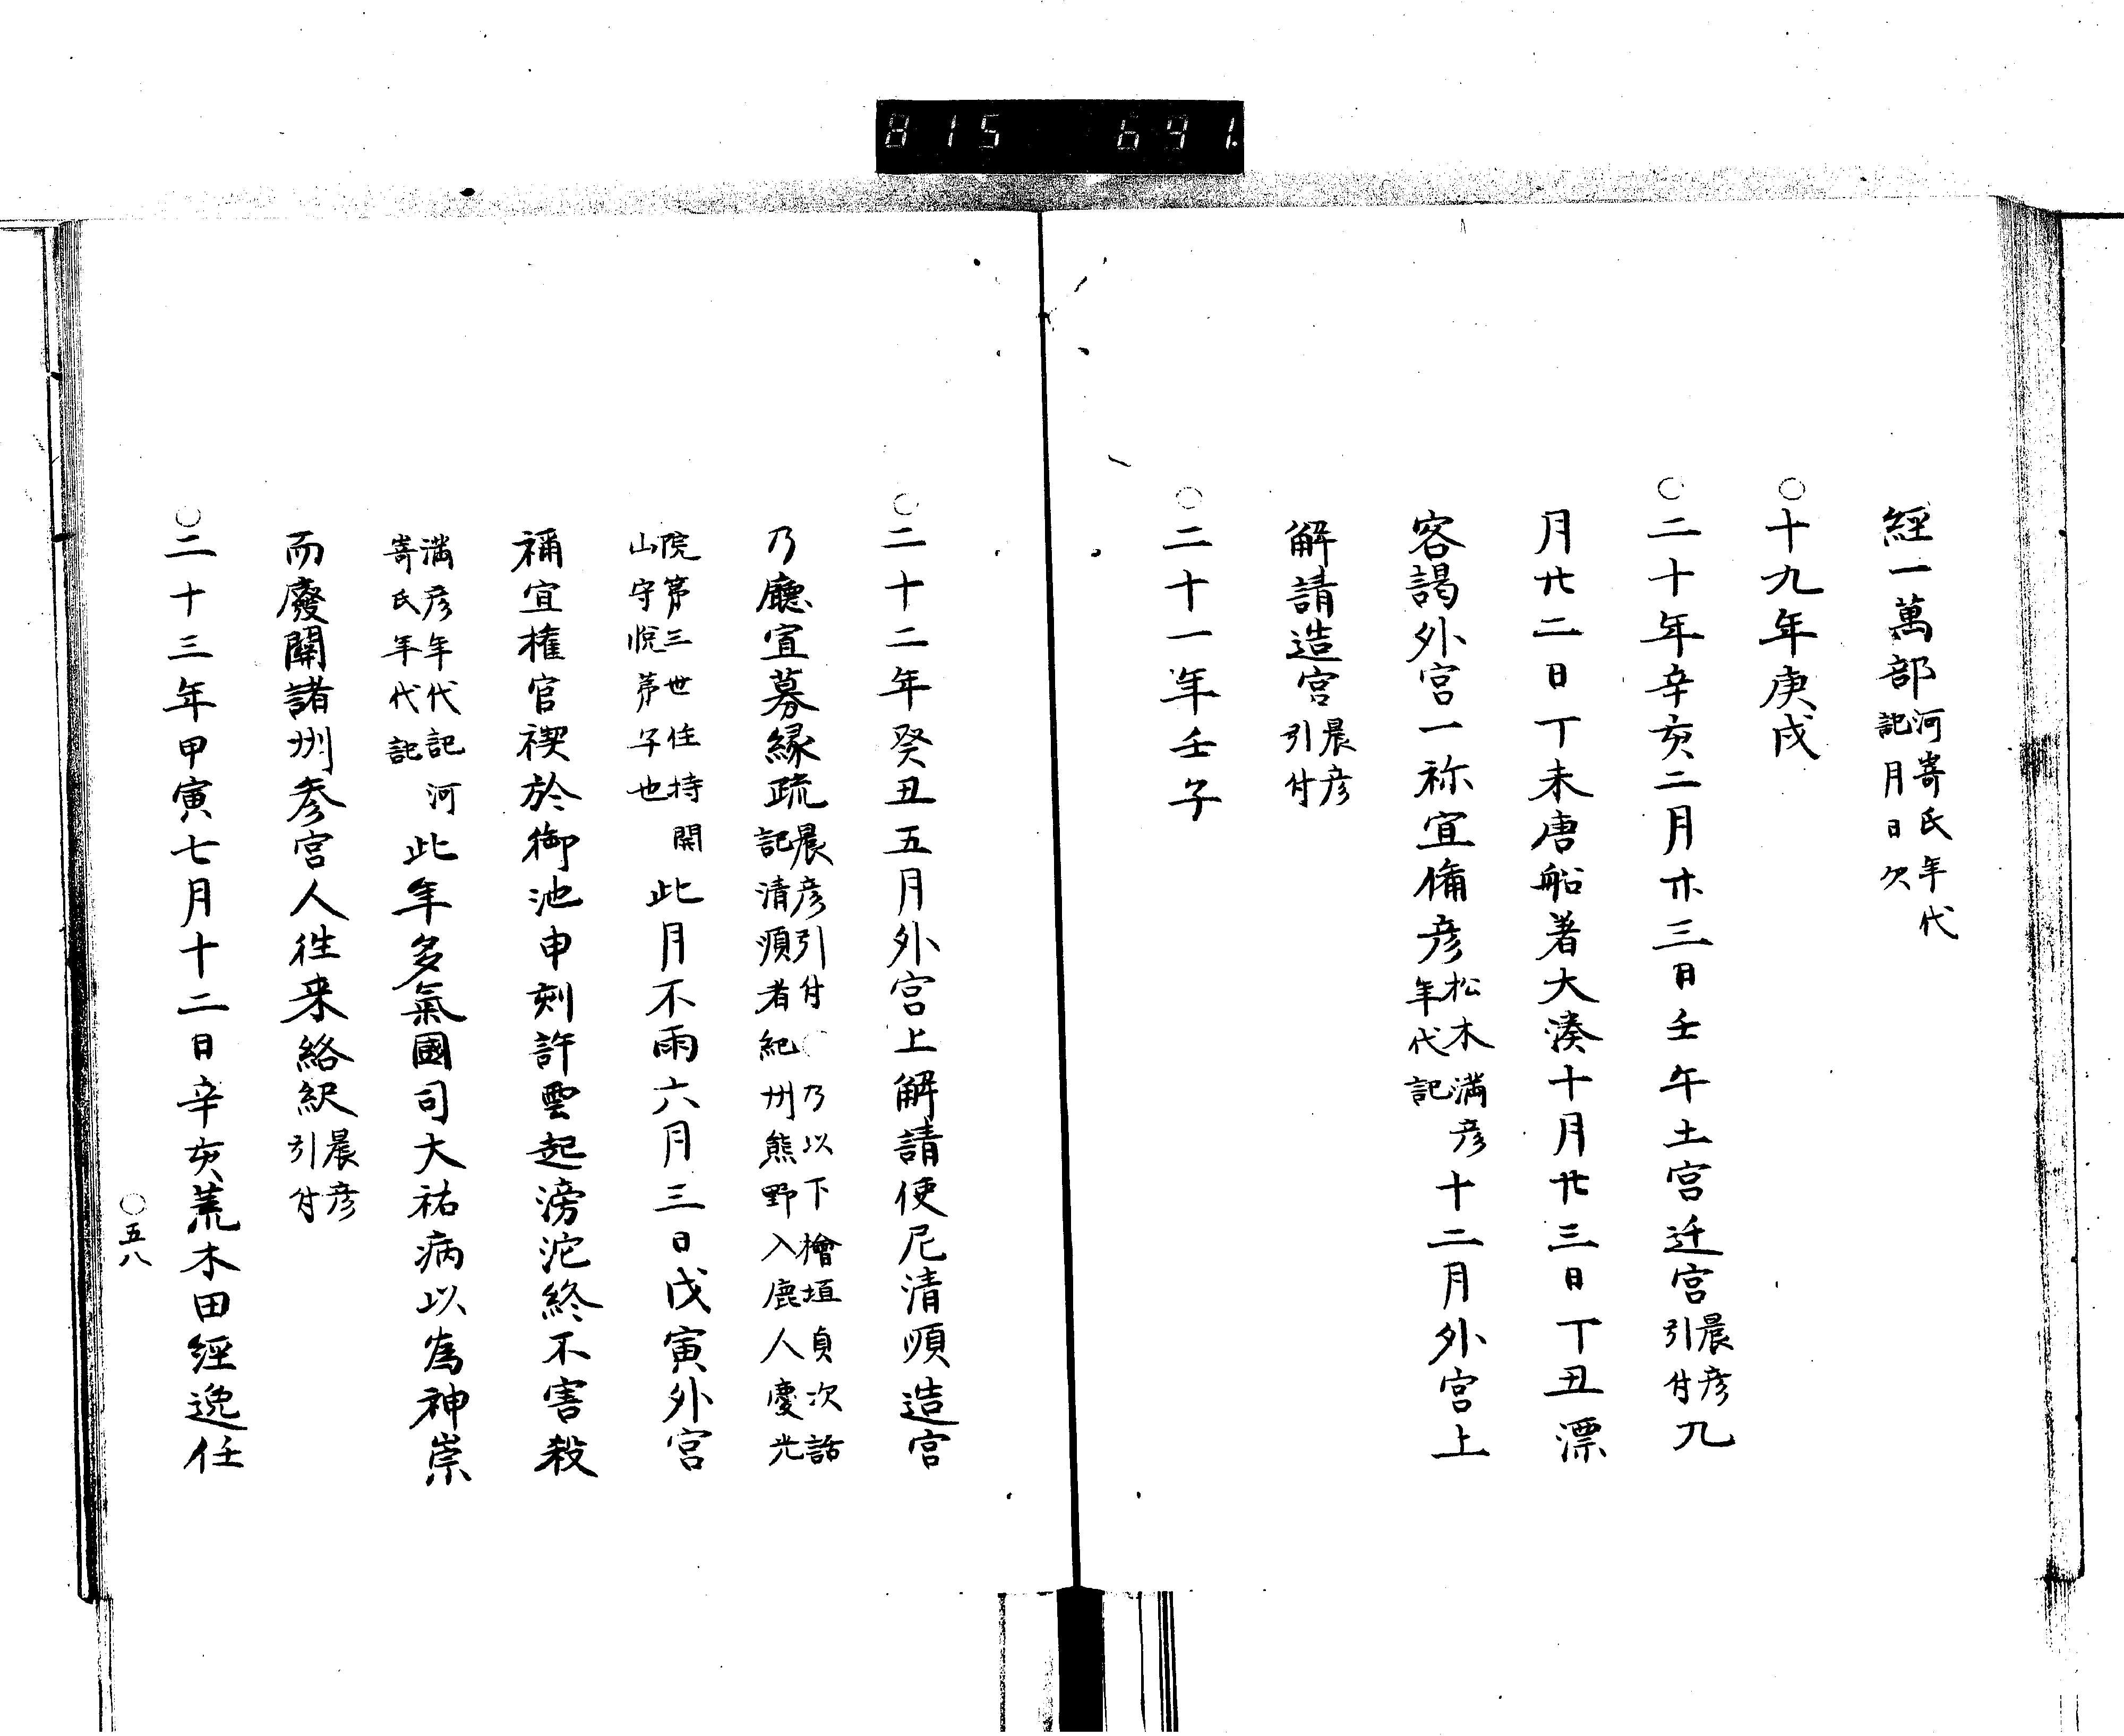 815 691.
經一萬部河㟢氏年代記月日次
○十九年庚戌
○二十年辛亥二月廿三日壬午土宮迁宮晨彦引付九
月廿二日丁未唐船著大湊十月廿三日丁丑漂
客謁外宮一祢宜備彦松木満彦年代記十二月外宮上
解請造宮晨彦引付
○二十一年壬子
○二十二年癸丑五月外宮上解請使尼清順造宮
乃廳宣募縁疏晨彦引付○乃以下檜垣貞次話記清順者紀州熊野入鹿人慶光
院第三世住持開山守悦第子也此月不雨六月三日戊寅外宮
禰宜権官禊於御池申刻許雲起滂沱終不害殺
満彦年代記河㟢氏年代記此年多氣國司大祐病以為神崇
而廢關諸州参宮人徃来絡繹晨彦引付
○二十三年甲寅七月十二日辛亥荒木田經逸任
○五八